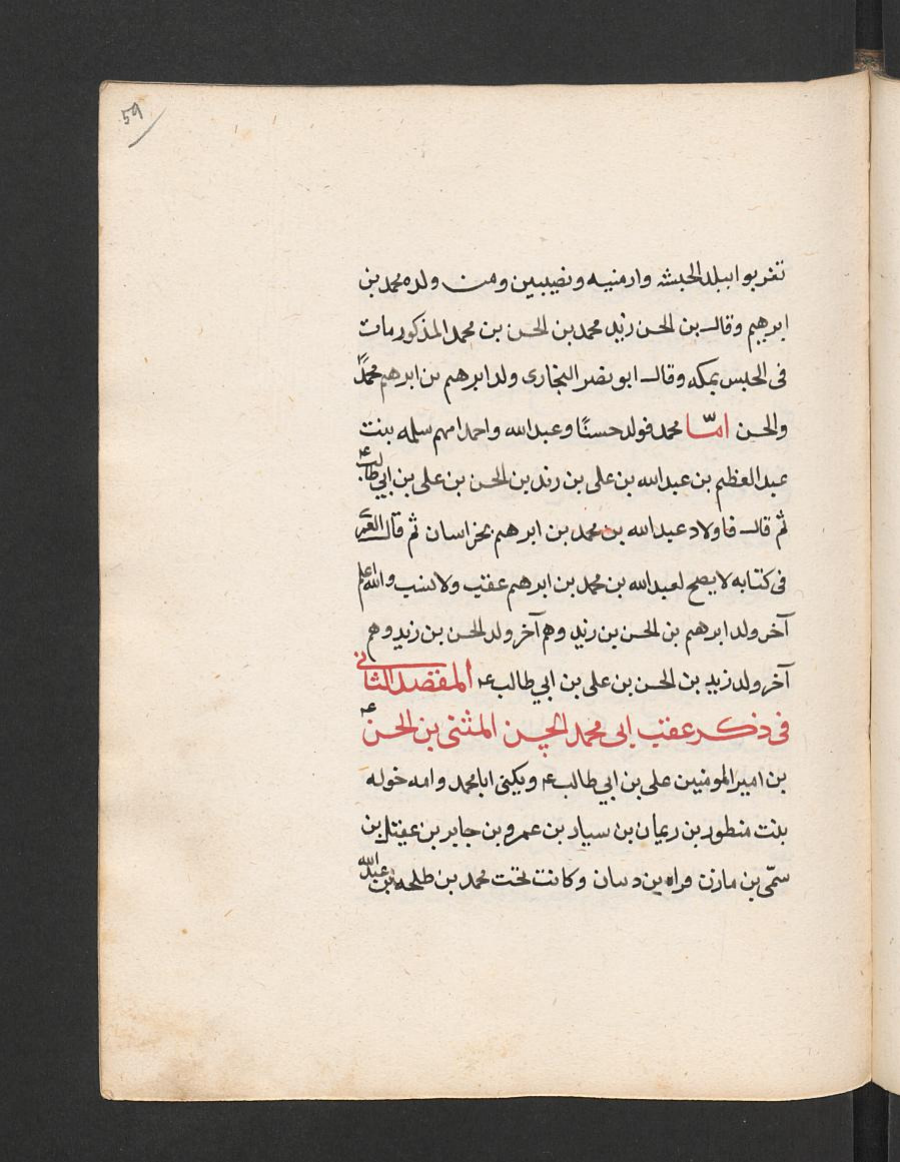 59
تغربوا ببلد الحبشه وارمنيه ونصيبين ومن ولده محمد بن
ابرهيم وقال بن الحسن زيد محمد بن الحسن بن محمد المذكور مات
فى الحبس بمكه وقال ابو نصر البخارى ولد ابرهم بن ابرهم محمدًا
والحسن امّا محمد فولد حسنًا وعبدالله واحمد امهم سلمه بنت
عبد العظيم بن عبدالله بن على بن زيد بن الحسن بن على بن ابي طالب ع
ثم قال فاولاد عبد الله بن محمد بن ابرهم بخراسان ثم قال العمرى
فى كتابه لا يصح لعبدالله بن محمد بن ابرهم عقب ولا نسب والله اعلم
آخر ولد ابرهم بن الحسن بن زيد وهم آخر ولد الحسن بن زيد وهم
آخر ولد زيد بن الحسن بن على بن ابي طالب ع المقصد الثانى
فى ذكر عقب ابى محمد الحسن المثنى بن الحسن ع
بن امير المومنين على بن ابي طالب ع ويكنى ابا محمد وامه خوله
بنت منطور بن ريمان بن سيار بن عمرو بن جابر بن عقيل بن
سمّى بن مازن فراه بن دسان وكانت تحت محمد بن طلحه بن عبدالله